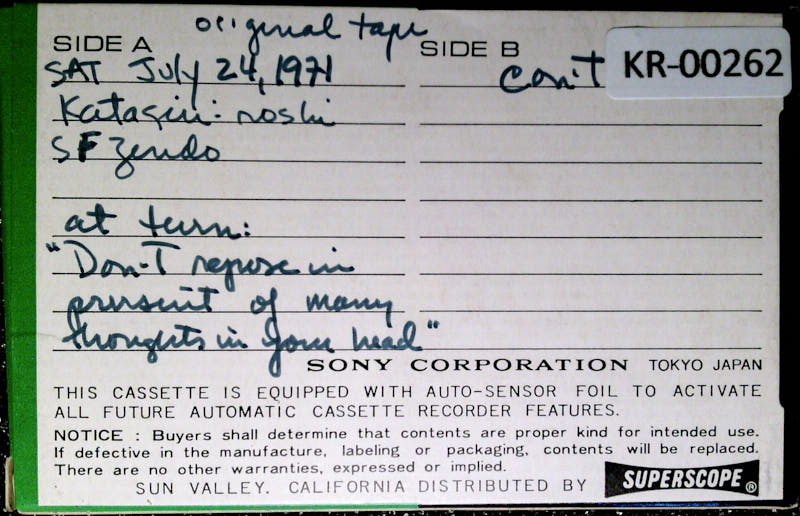 original tape
SIDE A
SIDE B
SAT July 24, 1971
con't
KR-00262
Katagiri-roshi
SF Zendo
at turn:
"Don't repose in
pursuit of many
thoughts in your head"
SONY CORPORATION TOKYO JAPAN
THIS CASSETTE IS EQUIPPED WITH AUTO-SENSOR FOIL TO ACTIVATE
ALL FUTURE AUTOMATIC CASSETTE RECORDER FEATURES.
NOTICE : Buyers shall determine that contents are proper kind for intended use.
If defective in the manufacture, labeling or packaging, contents will be replaced.
There are no other warranties, expressed or implied.
SUN VALLEY. CALIFORNIA DISTRIBUTED BY SUPERSCOPE®